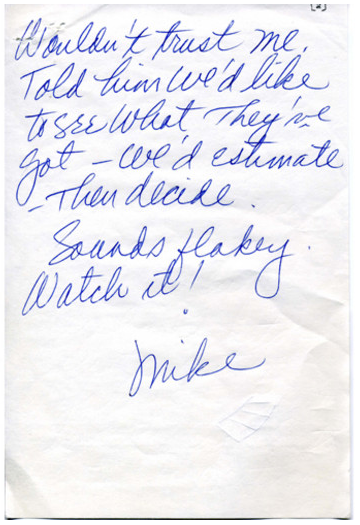 [2]
Wouldn't trust me.
Told him We'd like
to see What They've
got – We'd estimate
– Then decide.
Sounds flakey.
Watch it!
Mike